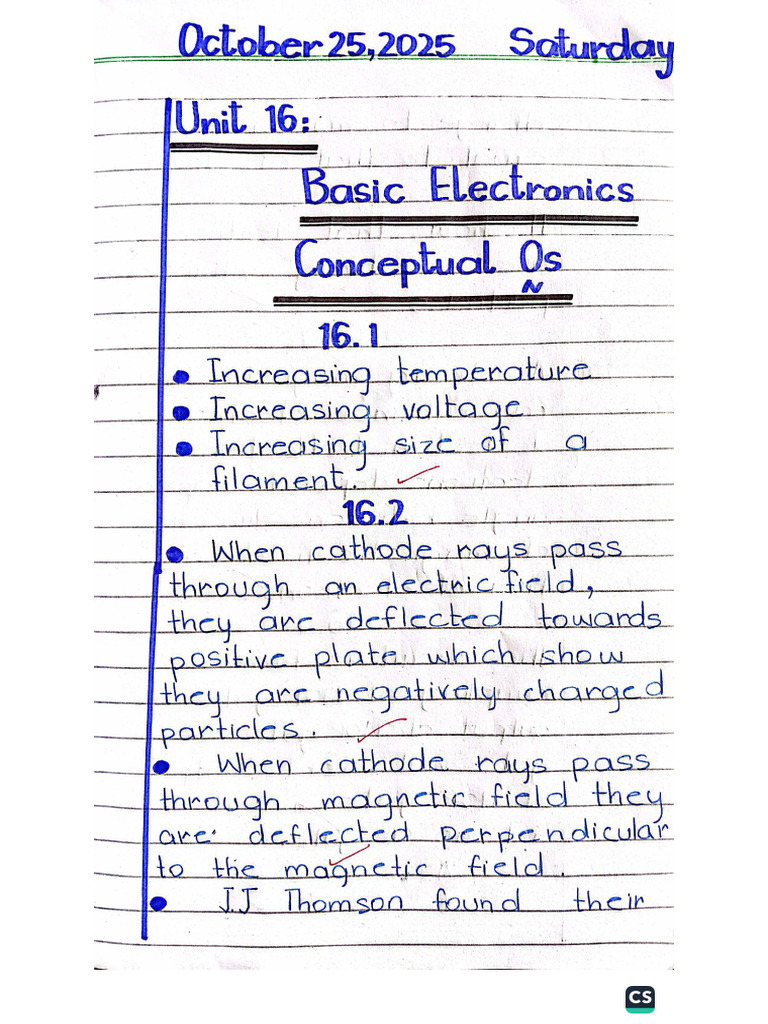 October 25, 2025 Saturday
Unit 16:
Basic Electronics
Conceptual Qs
16.1
• Increasing temperature
• Increasing voltage
• Increasing size of a
filament.
16.2
• When cathode rays pass
through an electric field,
they are deflected towards
positive plate which show
they are negatively charged
particles.
• When cathode rays pass
through magnetic field they
are deflected perpendicular
to the magnetic field.
• J.J Thomson found their
CS